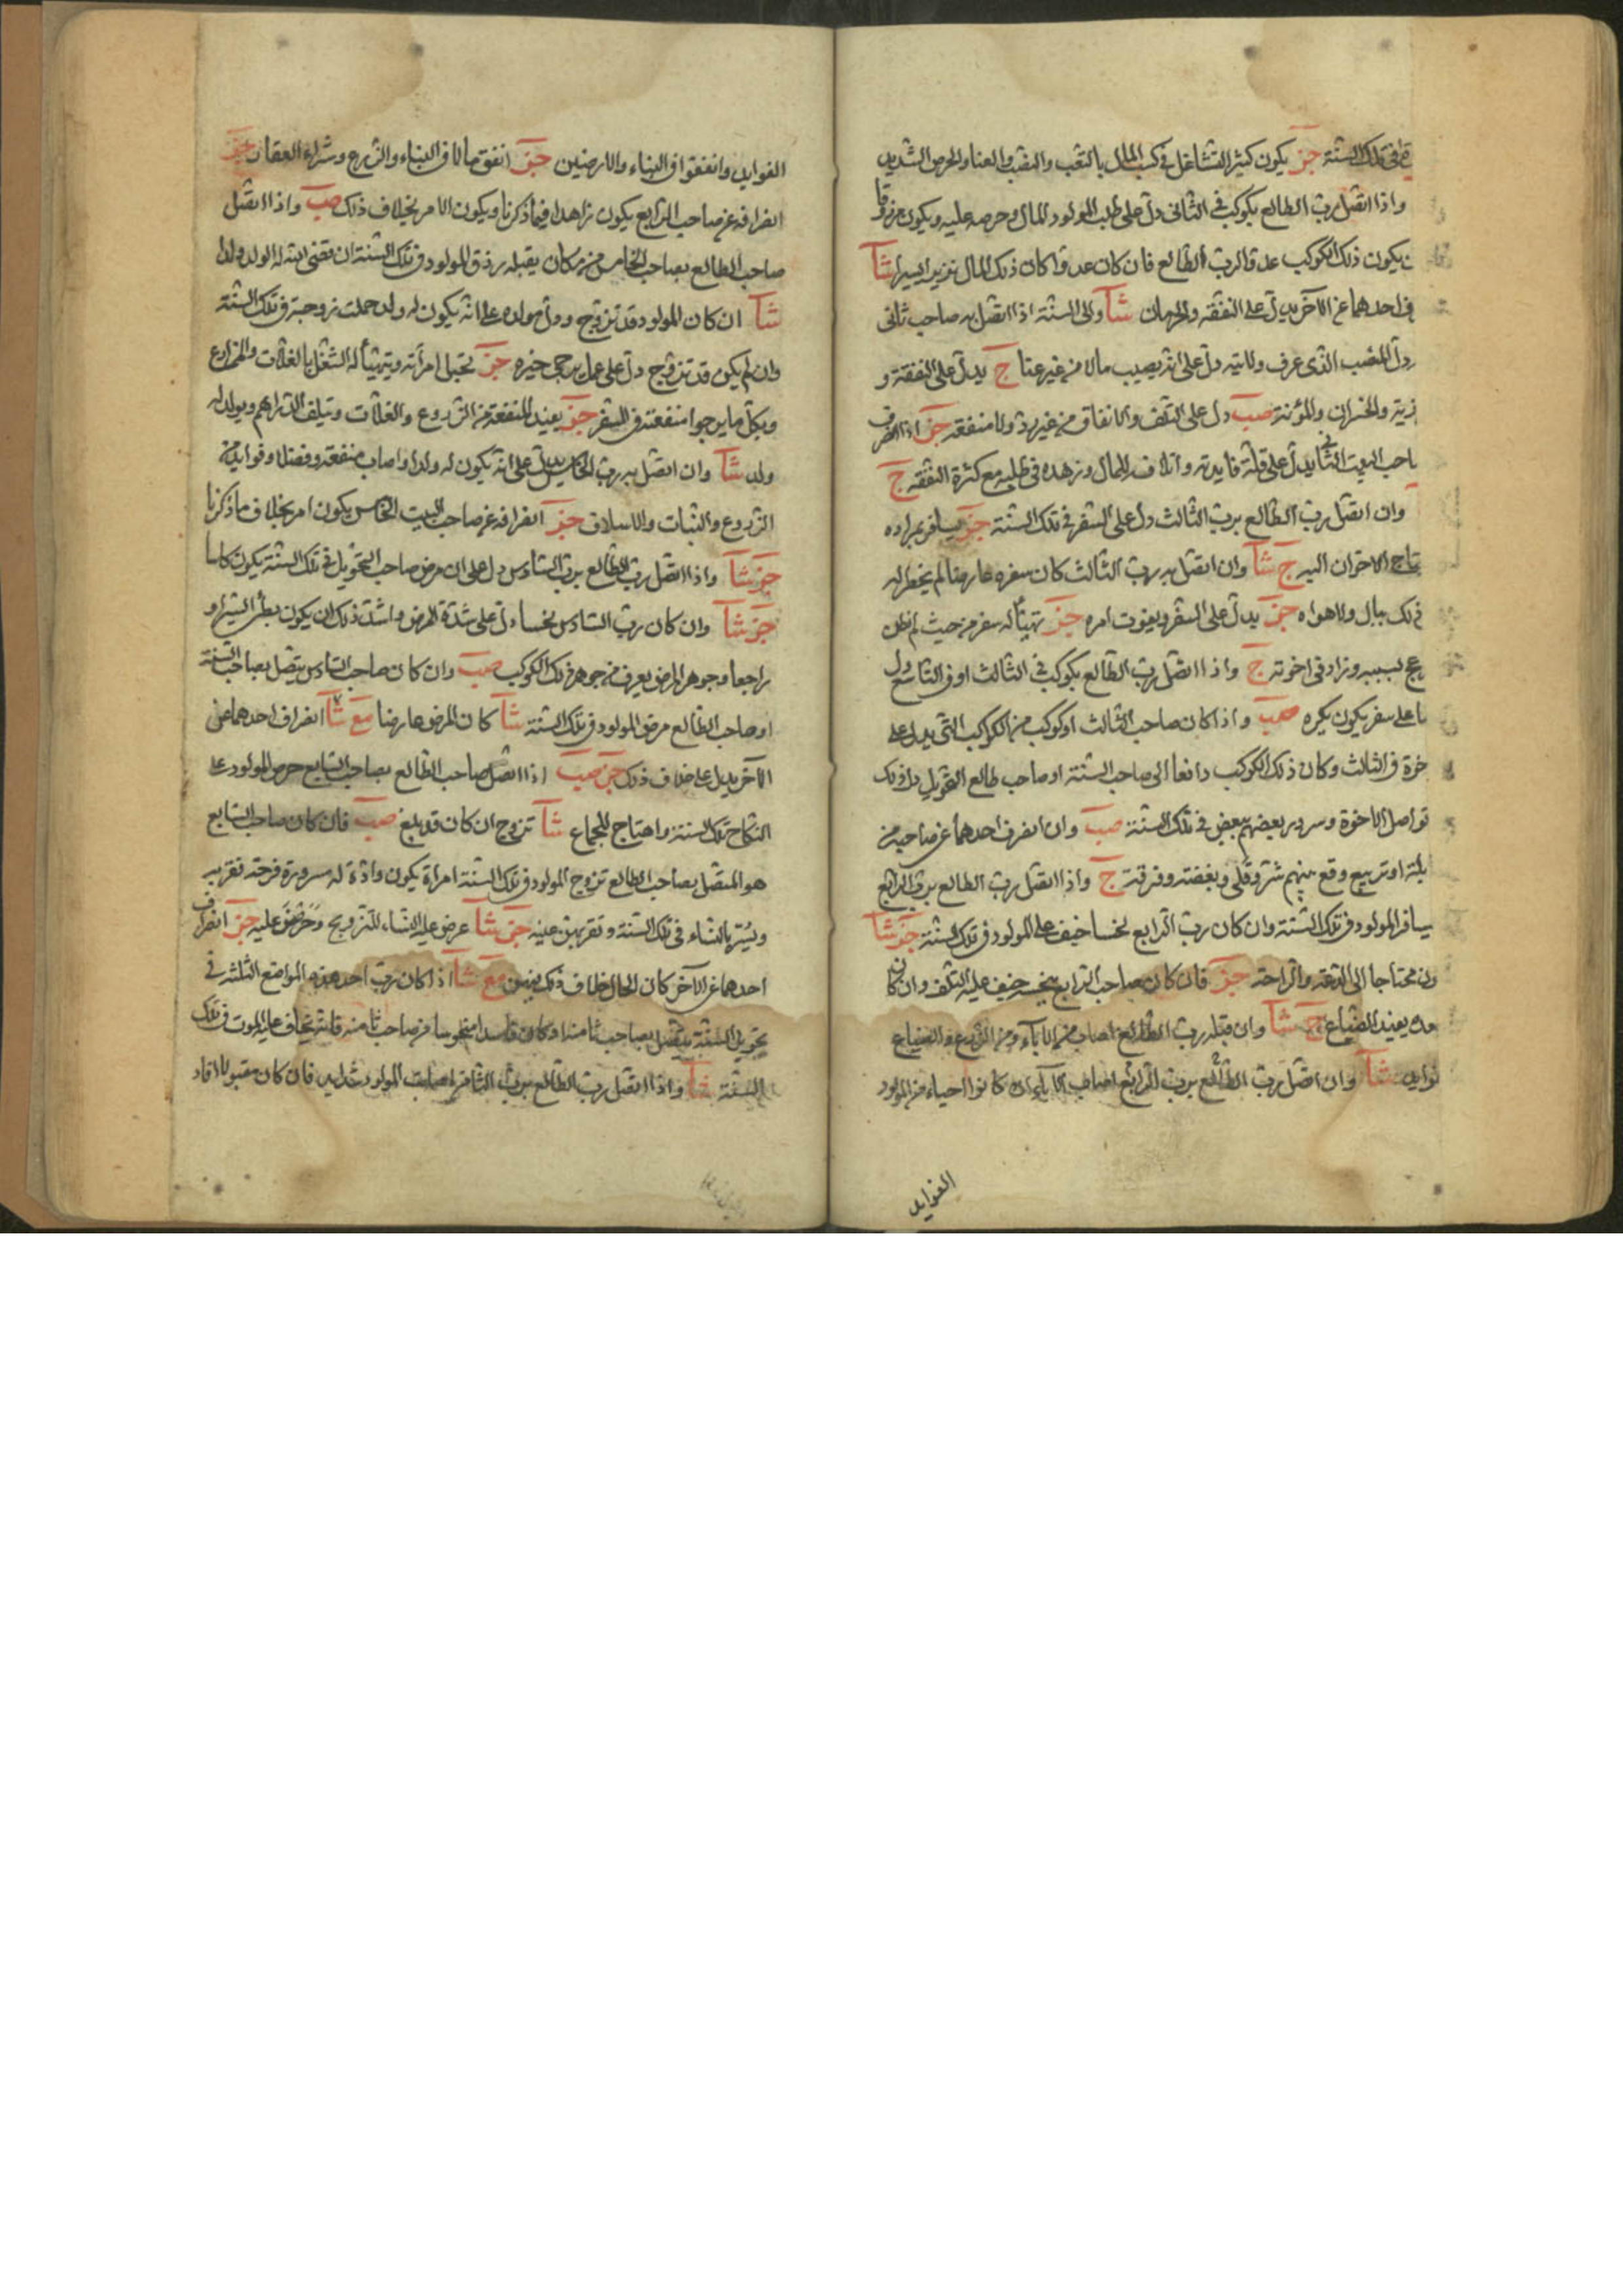 في تلك السنة جز يكون كثير التشاغل في كسب المال بالتعب والنصب والعنا والحرص الشديد
واذا اتصل رب الطالع بكوكب في الثاني دل على طلب المولود المال وحرصه عليه ويكون مرزوقا
يكون ذلك الكوكب عدوا لرب الطالع فان كان عدوا كان ذلك المال نزيرا يسيرا شآ
في احدهما عن الآخر يدل على النفقة والحرمان شآ والى السنة اذا اتصل به صاحب ثاني
دل المنصب الذي عرف ولايته دل على انه يصيب مالا من غير عنا ج يدل على النفقة و
زية والخسران والمؤنة صب دل على التلف والانفاق من غير ولا منفعة جز اذا انصرف
احب البيت الثاني يدل على قلة فايدته واتلاف المال وزهده في طلبه مع كثرة النفقة ج
وان اتصل رب الطالع برب الثالث دل على السفر في تلك السنة جز يسافر بمراده
تاج الاخوان اليه ج شآ وان اتصل به رب الثالث كان سفره عارضا لم يخطر له
ذلك ببال ولا هواه جز يدل على السفر ويفوت امره جز تهيأ له سفر من حيث لم يظن
بسببه وزاد في اخوته ج واذا اتصل رب الطالع بكوكب في الثالث او في التاسع دل
ما على سفر يكون يكره صب واذا كان صاحب الثالث او كوكب من الكواكب التي يدل على
خوة في الثالث وكان ذلك الكوكب دافعا الى صاحب السنة او صاحب طالع التحويل دل ذلك
تواصل الاخوة وسرور بعضهم ببعض في تلك السنة صب وان انصرف احدهما عن صاحبه من
بلة او تربيع وقع بينهم شر وقلى وبغضة وفرقة ج واذا اتصل رب الطالع برب الرابع
سافر المولود في تلك السنة وان كان رب الرابع نحسا خيف على المولود في تلك السنة جز شآ
ون محتاجا الى الدعة والراحة جز فان كان صاحب الرابع نحس خيف عليه التلف وان كان
يفيد الضياع ج شآ وان قبله رب الطالع اصاب من الآباء ومن الزرع والضياع
فوايد شآ وان اتصل رب الطالع برب الرابع اصاب الآباء ان كانوا احياء من المولود
الفوايد
الفوايد وانفقوا في البناء والارضين جز انفق مالا في البناء والزرع وشراء العقارات جز
انصرافه عن صاحب الرابع يكون زاهدا فيما ذكرنا ويكون الامر بخلاف ذلك صب واذا اتصل
صاحب الطالع بصاحب الخامس من مكان يقبله رزق المولود في تلك السنة ان قضى انه له الولد ولدا
شآ ان كان المولود قد تزوج ودل مولده على انه يكون له ولد حملت زوجته في تلك السنة
وان لم يكن قد تزوج دل على عمل يرجى خيره جز تحبل امرأته ويتهيأ له الشغل بالغلات والمزارع
وبكل ما يرجوا منفعته في السفر جز يفيد المنفعة من الزروع والغلات وتلف الدراهم ويولد له
ولد شآ وان اتصل به رب الخامس يدل على انه يكون له ولدا واصاب منفعة وفضلا وفوايد من
الزروع والنبات والاسلاف جز انصرافه عن صاحب البيت الخامس يكون امر بخلاف ما ذكرنا
جز شآ واذا اتصل رب الطالع برب السادس دل على ان مرض صاحب التحويل في تلك السنة يكون
جز شآ وان كان رب السادس نحسا دل على شدة المرض واشد ذلك ان يكون بطئ السير او
راجعا وجوهر المرض يعرف من جوهر ذلك الكوكب صب وان كان صاحب السادس يتصل بصاحب السنة
او صاحب الطالع مرض المولود في تلك السنة شآ كان المرض عارضا مع شآ انصراف احدهما عن
الآخر يدل على خلاف ذلك جز صب اذا اتصل صاحب الطالع بصاحب السابع حرص المولود على
النكاح تلك السنة واحتاج للجماع شآ تزوج ان كان قد بلغ صب فان كان صاحب السابع
هو المتصل بصاحب الطالع تزوج المولود في تلك السنة امرأة يكون وادّة له مسرورة فرحة تقر به
ويسر بالنساء في تلك السنة وتقر بهن عينه جز شآ عرض عليه النساء للتزويج وحرض عليه جز انصراف
احدهما عن الآخر كان الحال خلاف ذلك بينهن مع شآ اذا كان رب احد هذه المواضع الثلثة في
تحويل السنة يتصل بصاحب ثامنه او كان فاسدا منحوسا من صاحب ثامنه فانه يخاف عليه الموت في تلك
السنة شآ واذا اتصل رب الطالع برب الثامن اصابت المولود شدايد فان كان مقبولا افاد